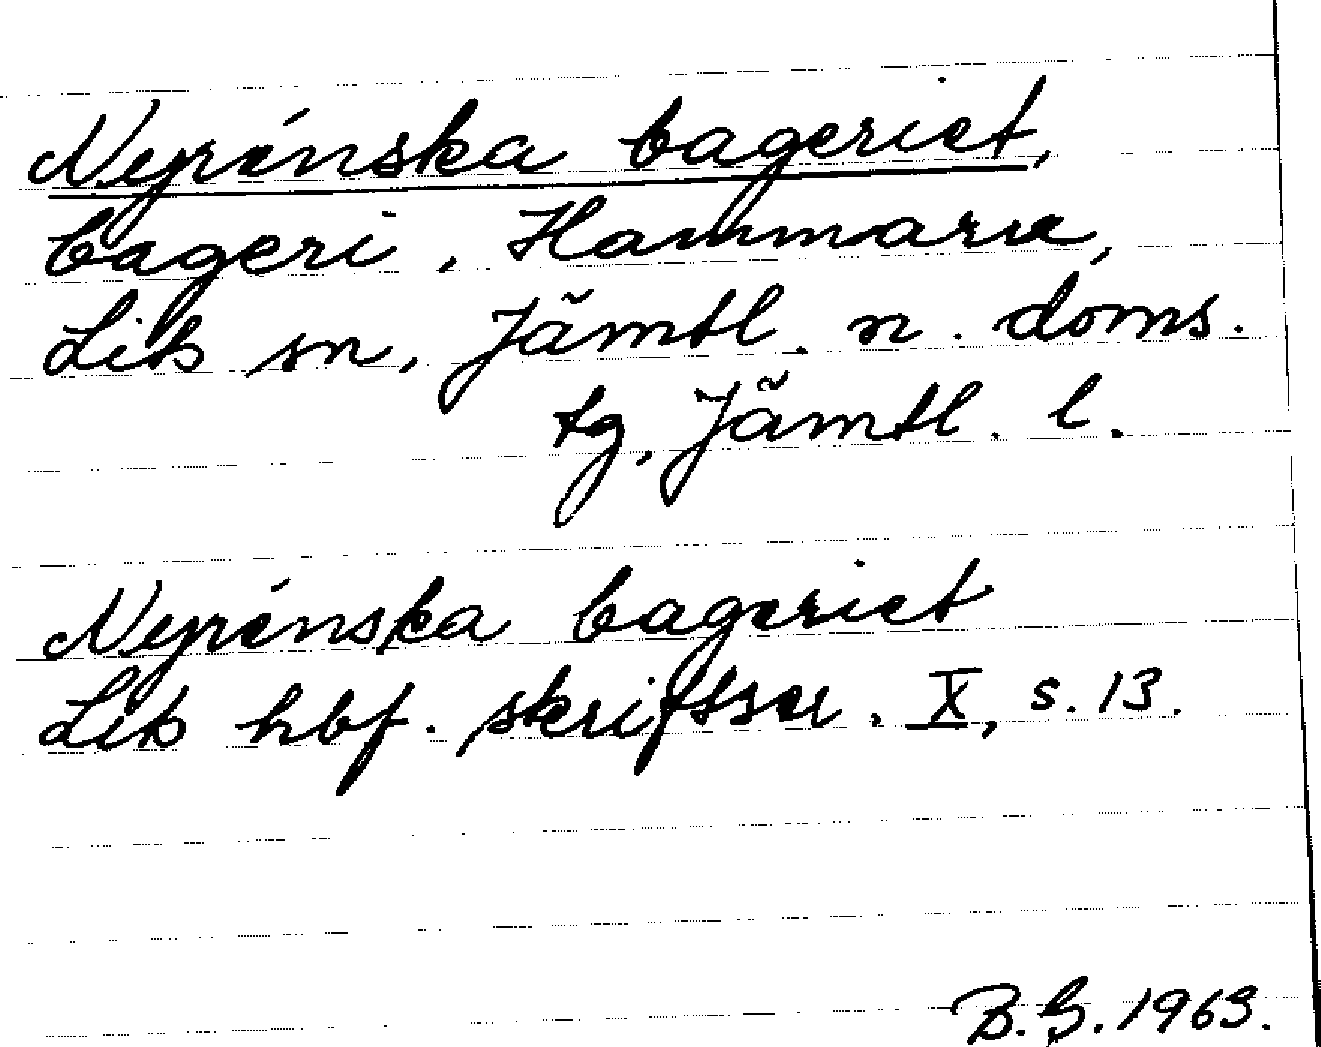 Nyrénska bageriet,
bageri, Hammarn,
Lits sn, Jämtl. n. doms.
tg. Jämtl. l.
Nyrénska bageriet
Lits hbf. skriftser. X, s. 13.
B.G. 1963.